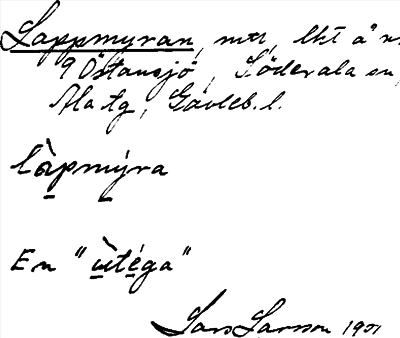 Lappmyran, mtr, lkt å nr
9 Östansjö, Söderala sn,
Ala tg, Gävleb. l.
làpmýra
En "ùtéga"
Lars Larsson 1901